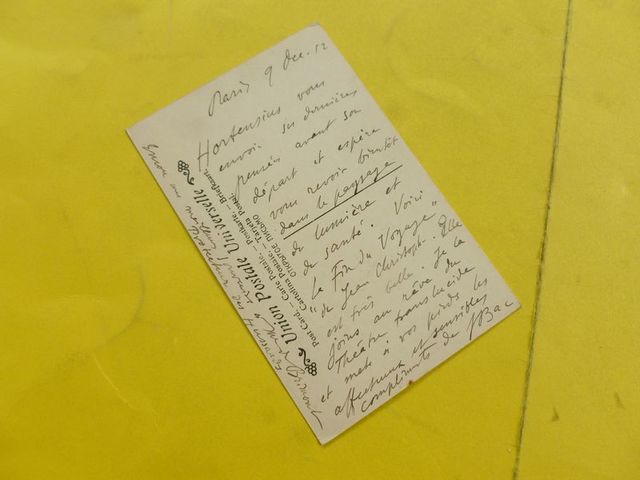 Paris 9 Dec. 12
Hortensius vous
envoie ses dernières
pensées avant son
départ et espère
vous revoir bientôt
dans le paysage
de lumière et
de santé. Voici
la Fin du Voyage
"de Jean Christophe". Elle
est très belle. Je la
joins au rêve du
Théâtre translucide
et mets à vos pieds les
affectueux et sensibles
compliments de JBac
Union Postale Universelle
Post Card. – Carte Postale. – Postkarte. – Tarjeta Postal. – Briefkaart.
Cartolina Postale. – ОТКРЫТОЕ ПИСЬМО
meilleurs
à Mme de Brimont